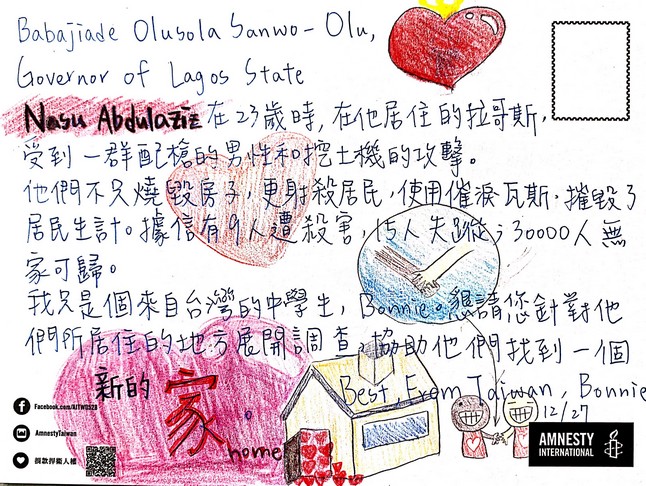 Babajiade Olusola Sanwo-Olu,
Governor of Lagos State
Nasu Abdulaziz 在23歲時,在他居住的拉哥斯,
受到一群配槍的男性和挖土機的攻擊。
他們不只燒毀房子,更射殺居民,使用催淚瓦斯,摧毀了
居民生計。據信有9人遭殺害,15人失蹤;30000人無
家可歸。
我只是個來自台灣的中學生,Bonnie。懇請您針對他
們所居住的地方展開調查,協助他們找到一個
新的家
home
Best, From Taiwan, Bonnie
12/27
Facebook.com/AITW0528
AmnestyTaiwan
捐款捍衛人權
AMNESTY
INTERNATIONAL